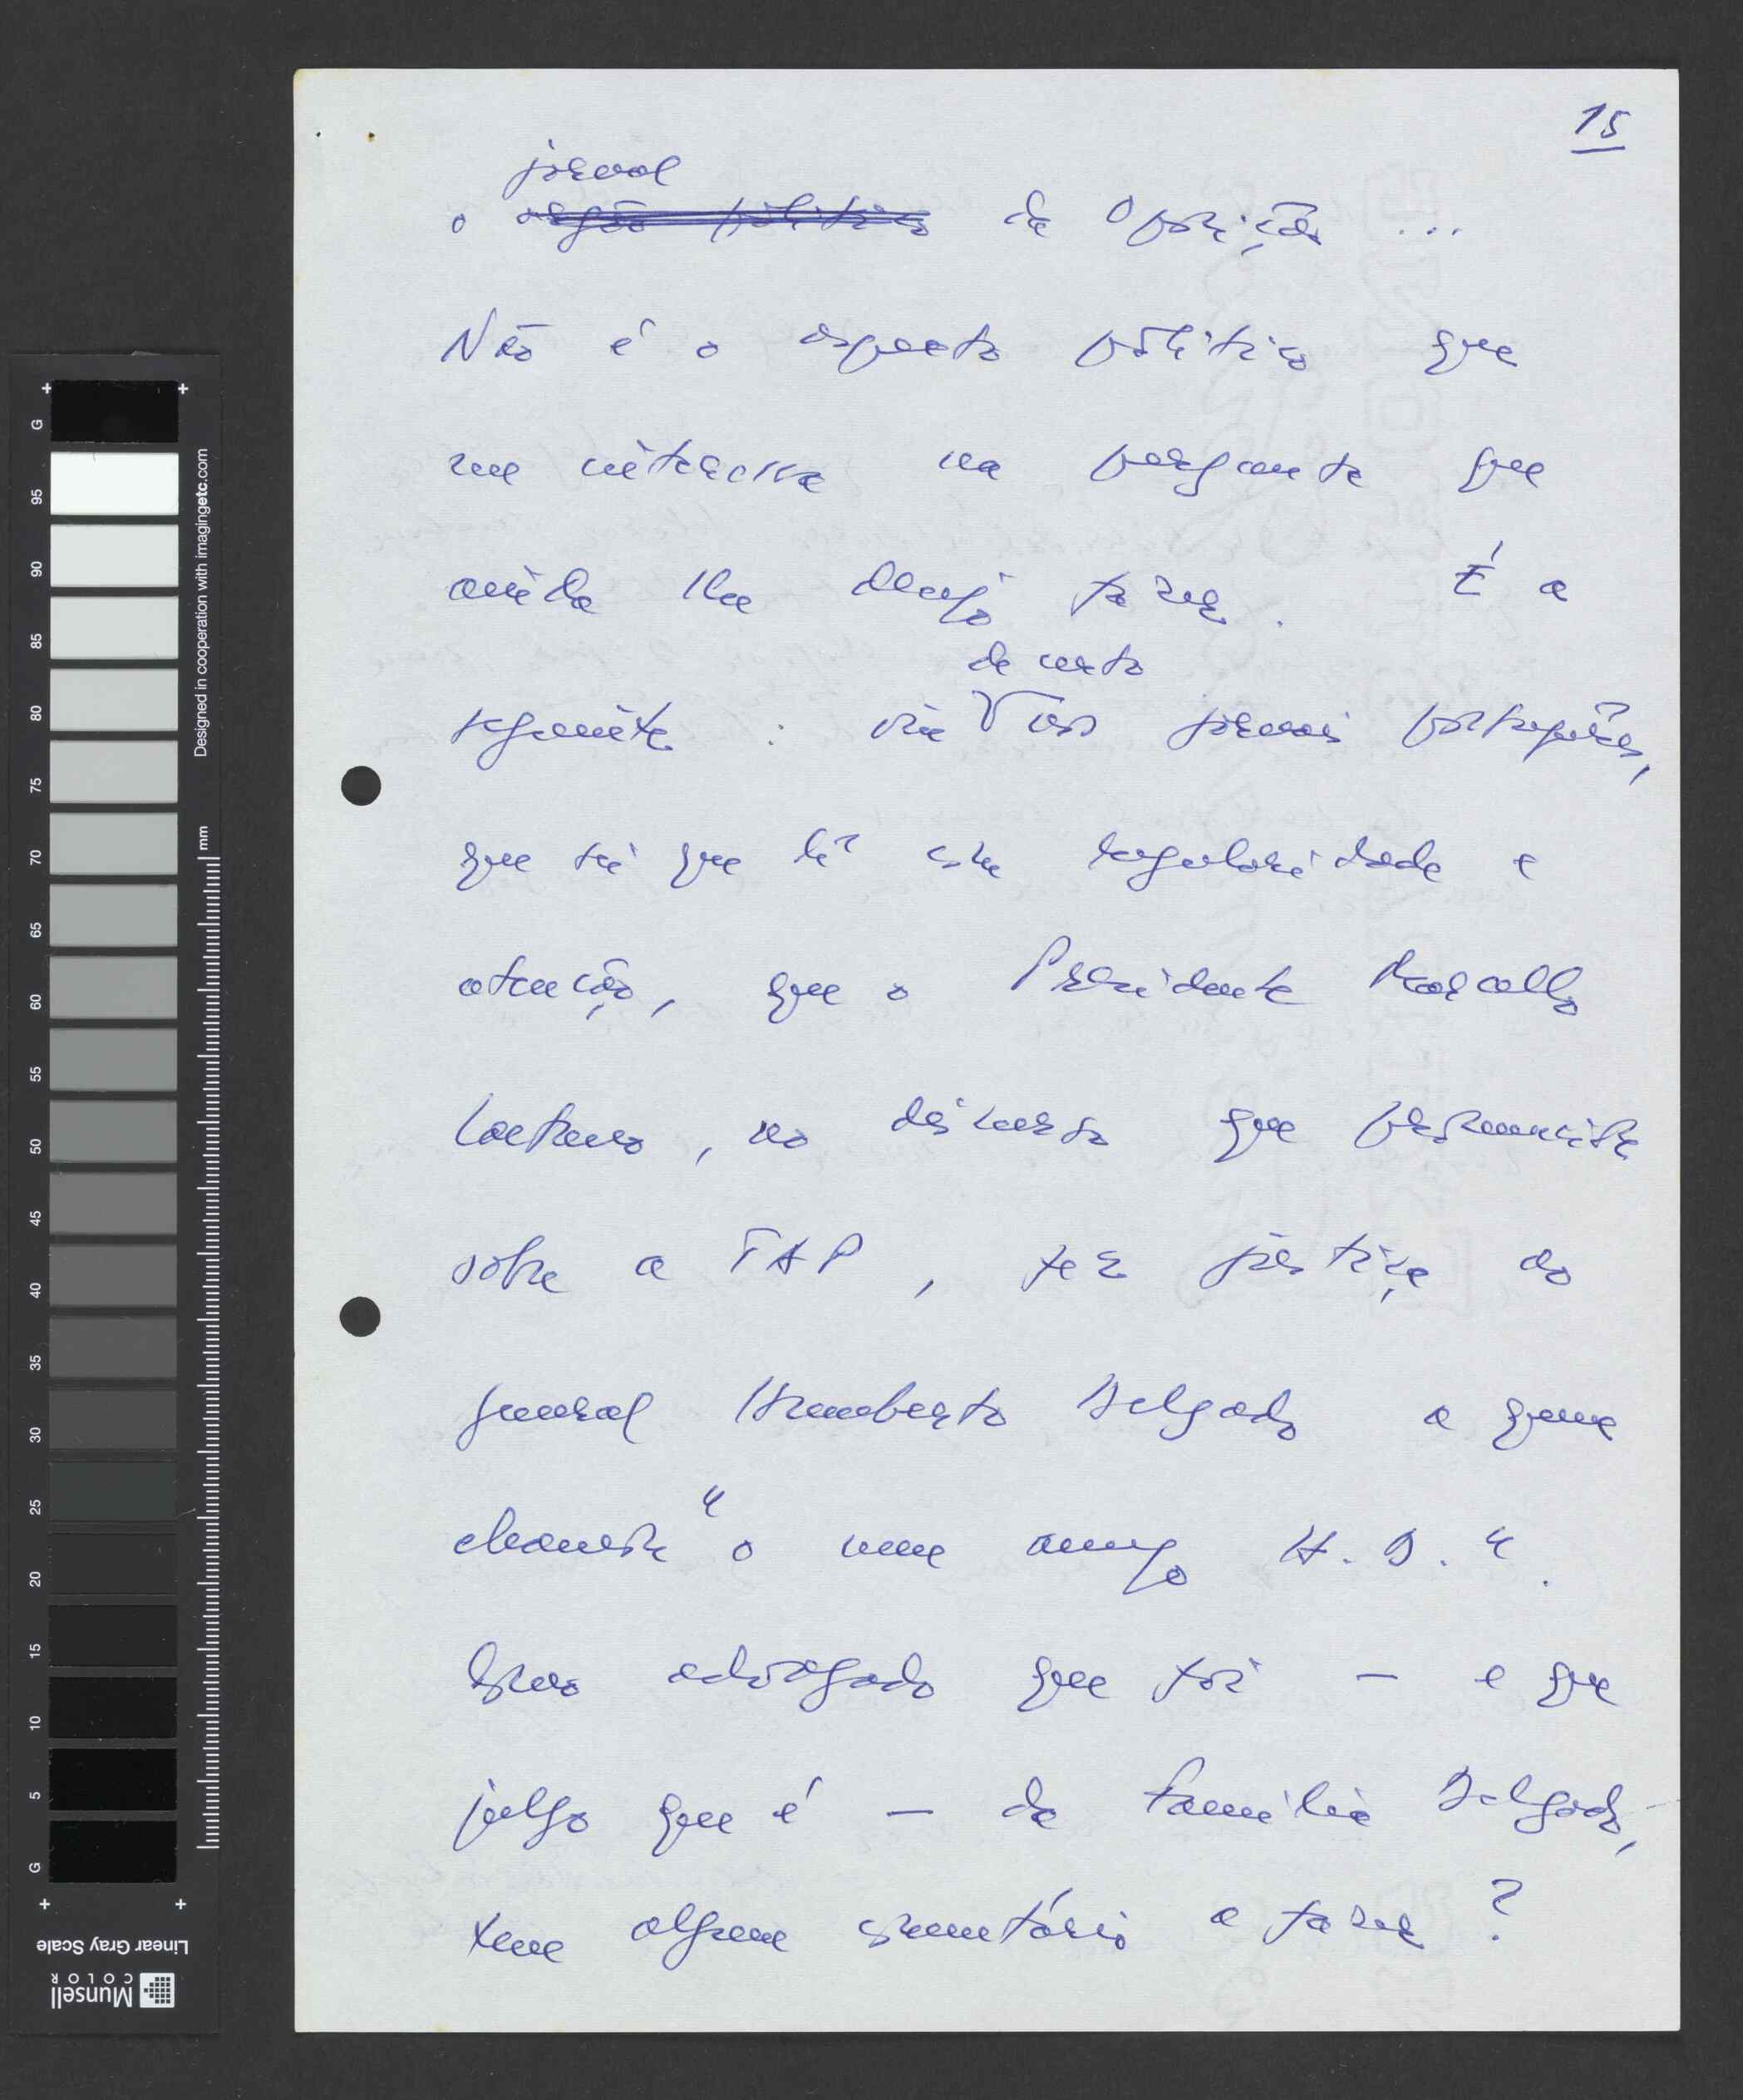 15
jornal
o orgão político da Oposição ...
Não é o aspecto político que
me interessa na pergunta que
ainda lhe desejo fazer. É a
de certo
seguinte : viu nos jornais portugueses,
que sei que lê com regularidade e
atenção, que o Presidente Marcello
Caetano, no discurso que pronunciou
sobre a TAP, fez justiça ao
general Humberto Delgado a quem
chamou "o meu amigo H. D.".
Como advogado que foi — e que
julgo que é — da família Delgado,
tem algum comentário a fazer?
Designed in cooperation with imagingetc.com
mm
G
95
90
85
80
75
70
65
60
55
50
45
40
35
30
25
20
15
10
5
G
Linear Gray Scale
Munsell
COLOR